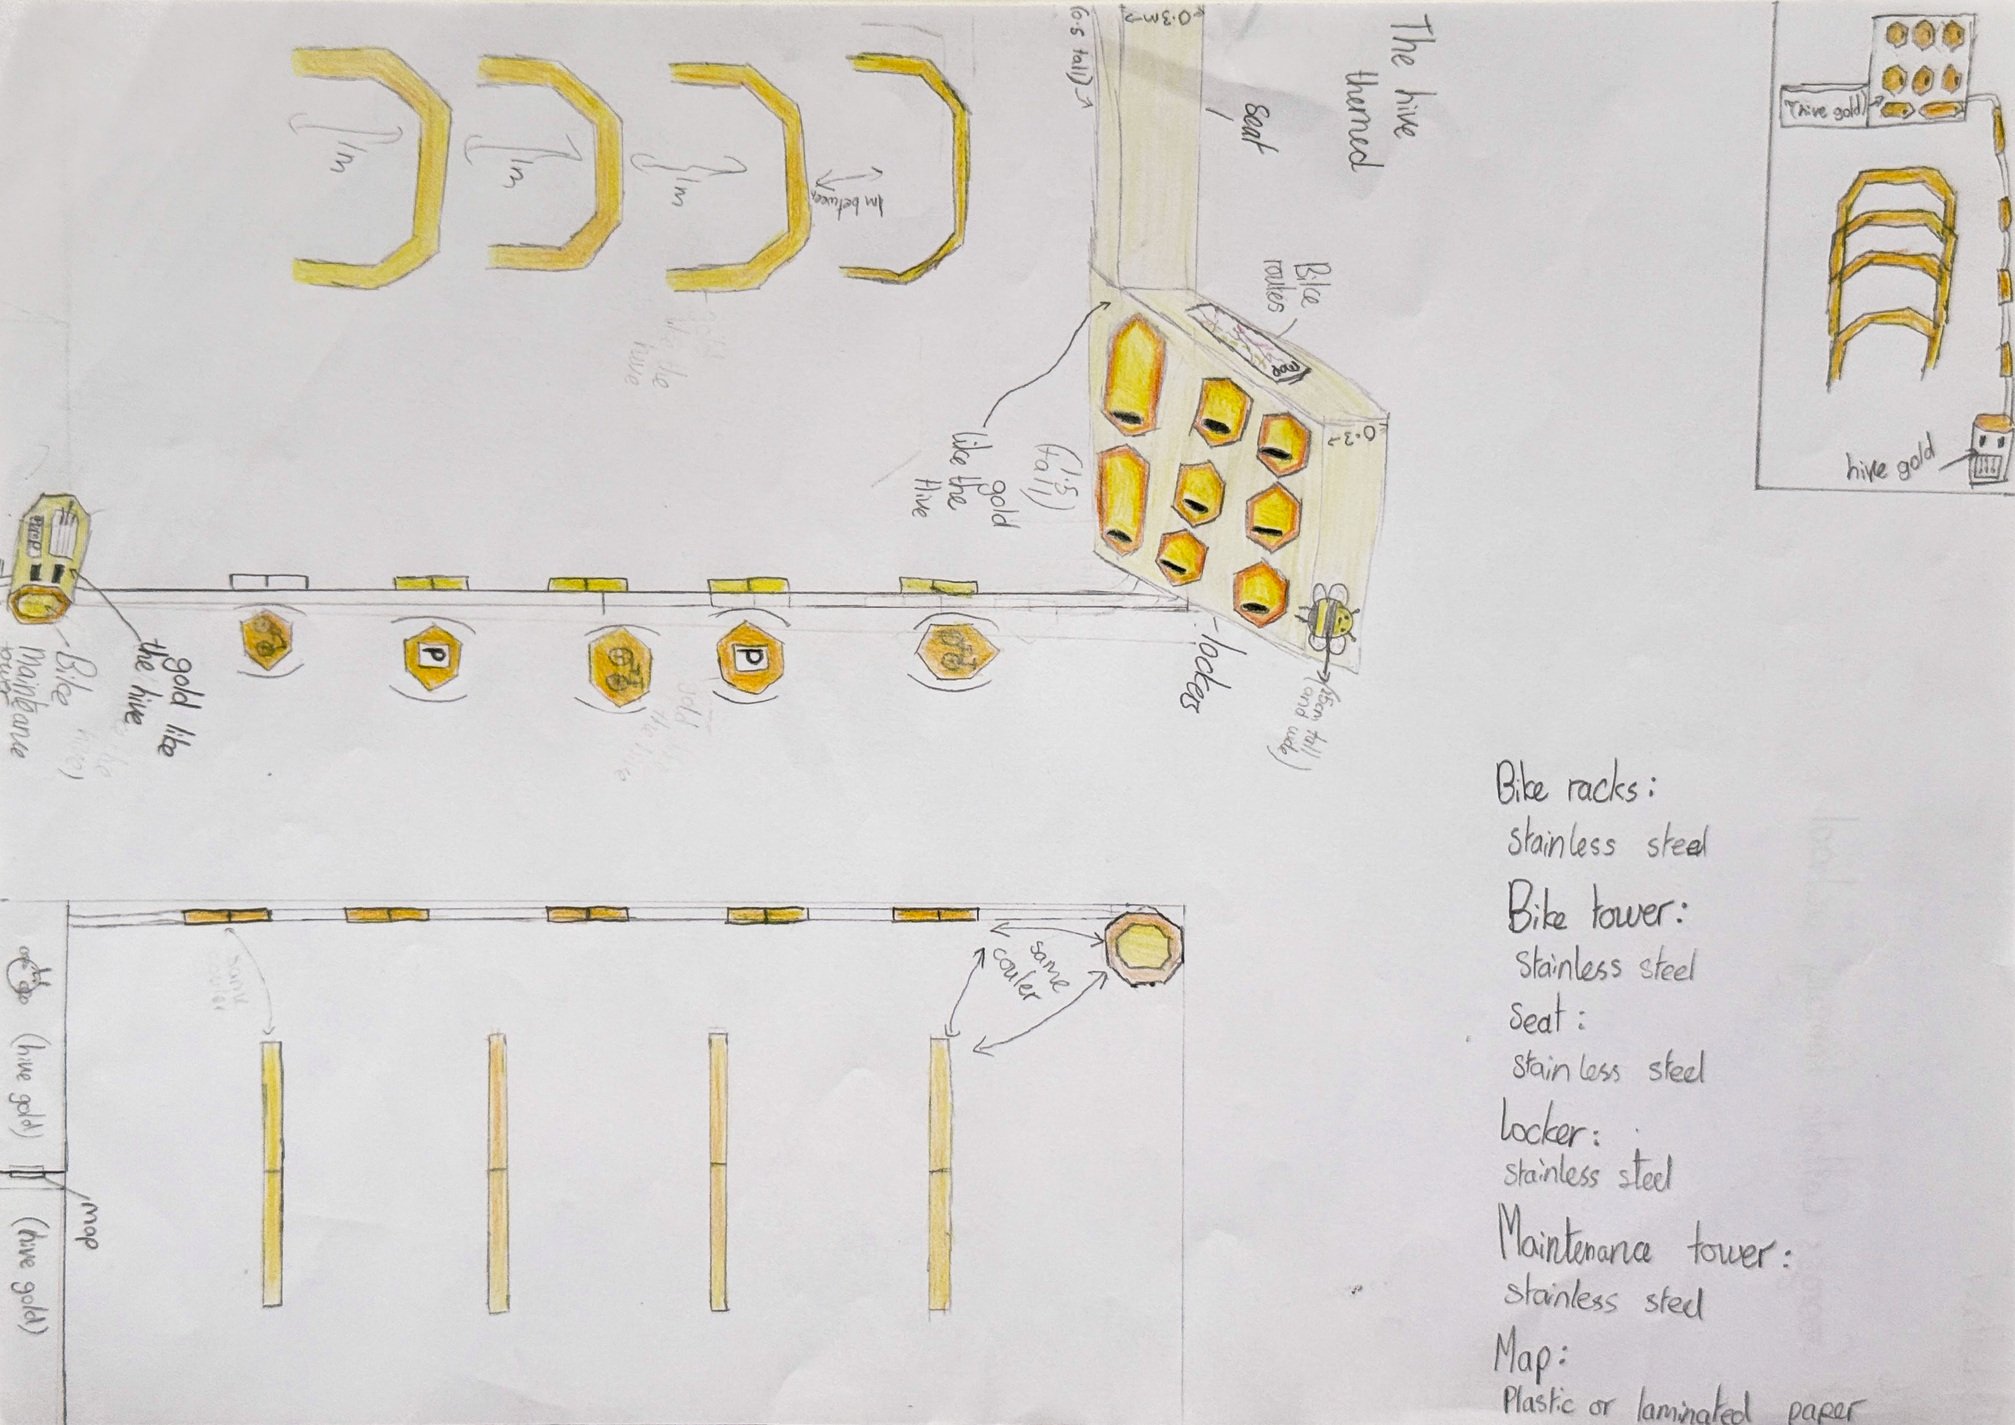 The hive
themed
0.3m
(0.5 tall)
seat
1m between
1m
1m
1m
Bike
routes
map
0.3
(1.5
tall)
gold
like the
Hive
lockers
(25cm tall
and wide)
P
P
map
gold like
the hive
Bike
Maintenance
(hive gold)
hive gold
same
couler
map
(hive gold)
(hive gold)
Bike racks:
stainless steel
Bike tower:
Stainless steel
Seat:
stainless steel
Locker:
stainless steel
Maintenance tower:
stainless steel
Map:
Plastic or laminated paper